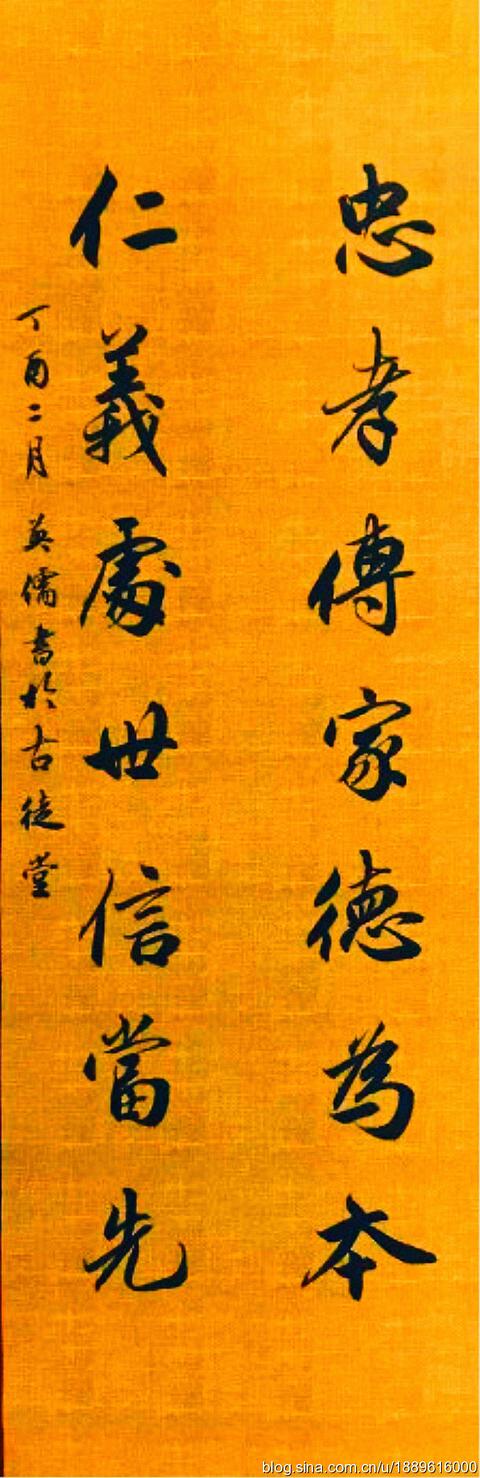 忠孝傳家德為本
仁義處世信當先
丁酉二月 英儒書於古徒堂
blog.sina.com.cn/u/1889616000